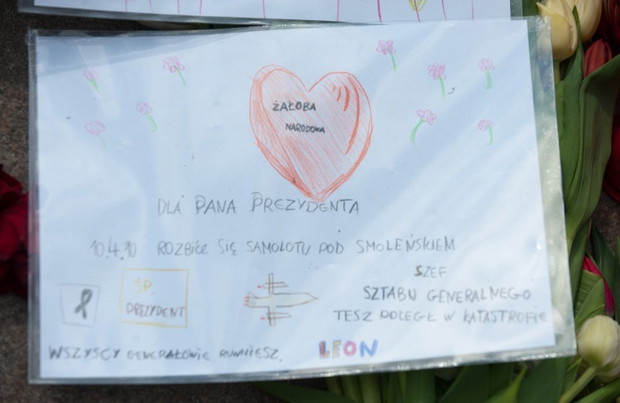 ŻAŁOBA
NARODOWA
DLA PANA PREZYDENTA
10.4.10 ROZBICE SIĘ SAMOLOTU POD SMOLEŃSKIEM
SZEF
ŚP. SZTABU GENERALNEGO
PREZYDENT TESZ POLEGŁ W KATASTROFIE
WSZYSCY GENERAŁOWIE RUWNIESZ. LEON